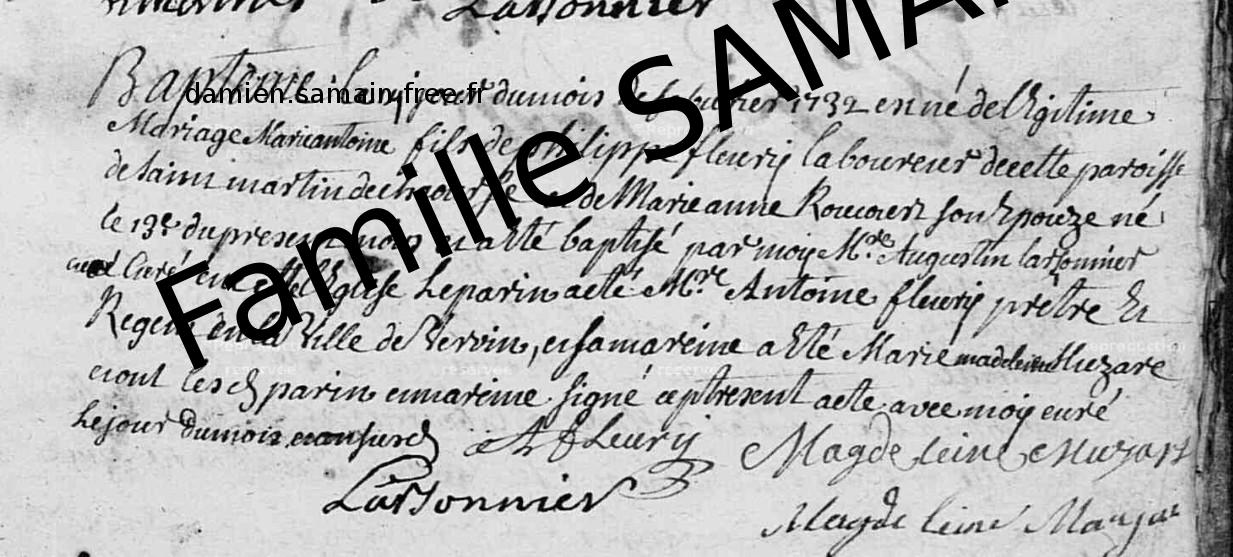 Larsonnier
Baptême damien.samain.free.fr jour dumois de fevrier 1732 est né de lEgitime
Mariage Marieantoine fils de philippe fleury laboureur decette paroisse
de saint martin de et de Marieanne son Epouze né
le 13e dupresent mois et a été baptisé par moy Mre Augustin larsonnier
Curé en cette Eglise Leparin a eté Mre Antoine fleury prêtre Et
Regent en la Ville de Vervin, et samareine a Eté Marie madeleine Huzare
eiont lesd parin et mareine signé ceptresent acte avec moy curé
Lejour dumois et an susd A fleury Magdeleine Huzart
Larsonnier
Magdeleine
Famille SAMA